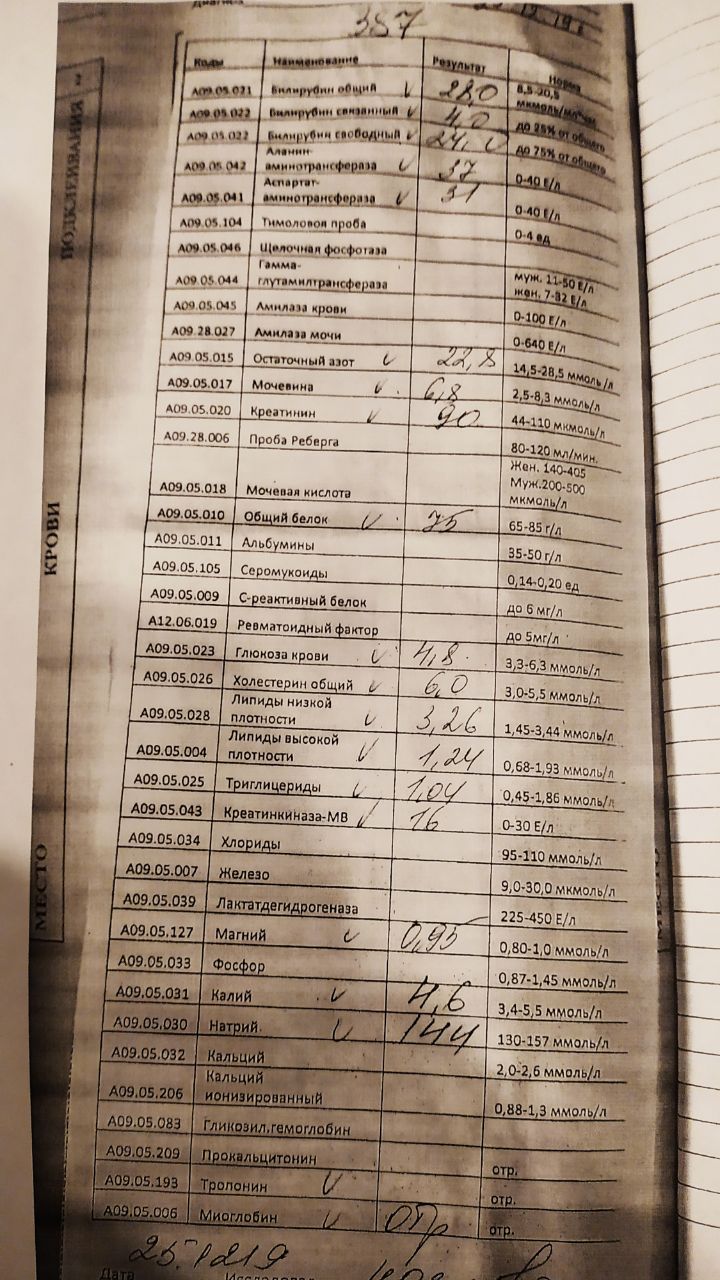 387
Коды Наименование Результат Норма
А09.05.021 Билирубин общий ✓ 28,0 8,5-20,5 мкмоль/мл
А09.05.022 Билирубин связанный ✓ 4,0 до 25% от общего
А09.05.022 Билирубин свободный ✓ 24,0 до 75% от общего
А09.05.042 Аланин-аминотрансфераза ✓ 37 0-40 Е/л
А09.05.041 Аспартат-аминотрансфераза ✓ 31 0-40 Е/л
А09.05.104 Тимоловоя проба 0-4 ед
А09.05.046 Щелочная фосфотаза
А09.05.044 Гамма-глутамилтрансфераза муж. 11-50 Е/л жен. 7-32 Е/л
А09.05.045 Амилаза крови 0-100 Е/л
А09.28.027 Амилаза мочи 0-640 Е/л
А09.05.015 Остаточный азот ✓ 22,8 14,5-28,5 ммоль/л
А09.05.017 Мочевина ✓ 6,8 2,5-8,3 ммоль/л
А09.05.020 Креатинин ✓ 90 44-110 мкмоль/л
А09.28.006 Проба Реберга 80-120 мл/мин.
А09.05.018 Мочевая кислота Жен. 140-405 Муж.200-500 мкмоль/л
А09.05.010 Общий белок ✓ 75 65-85 г/л
А09.05.011 Альбумины 35-50 г/л
А09.05.105 Серомукоиды 0,14-0,20 ед
А09.05.009 С-реактивный белок до 6 мг/л
А12.06.019 Ревматоидный фактор до 5мг/л
А09.05.023 Глюкоза крови ✓ 4,8 3,3-6,3 ммоль/л
А09.05.026 Холестерин общий ✓ 6,0 3,0-5,5 ммоль/л
А09.05.028 Липиды низкой плотности ✓ 3,26 1,45-3,44 ммоль/л
А09.05.004 Липиды высокой плотности ✓ 1,24 0,68-1,93 ммоль/л
А09.05.025 Триглицериды ✓ 1,04 0,45-1,86 ммоль/л
А09.05.043 Креатинкиназа-МВ ✓ 16 0-30 Е/л
А09.05.034 Хлориды 95-110 ммоль/л
А09.05.007 Железо 9,0-30,0 мкмоль/л
А09.05.039 Лактатдегидрогеназа 225-450 Е/л
А09.05.127 Магний ✓ 0,95 0,80-1,0 ммоль/л
А09.05.033 Фосфор 0,87-1,45 ммоль/л
А09.05.031 Калий ✓ 4,6 3,4-5,5 ммоль/л
А09.05.030 Натрий ✓ 144 130-157 ммоль/л
А09.05.032 Кальций 2,0-2,6 ммоль/л
А09.05.206 Кальций ионизированный 0,88-1,3 ммоль/л
А09.05.083 Гликозил.гемоглобин
А09.05.209 Прокальцитонин отр.
А09.05.193 Тропонин ✓ отр.
А09.05.006 Миоглобин ✓ отр отр.
25.1219
Дата
МЕСТО КРОВИ ПОДКЛЕИВАНИЯ
МЕСТО